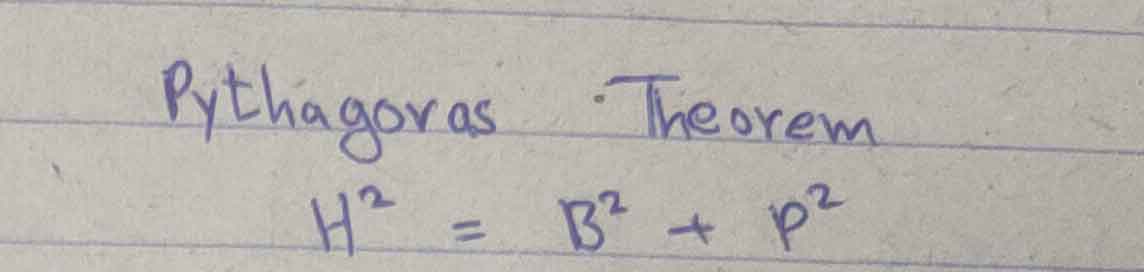 Pythagoras Theorem
H² = B² + P²